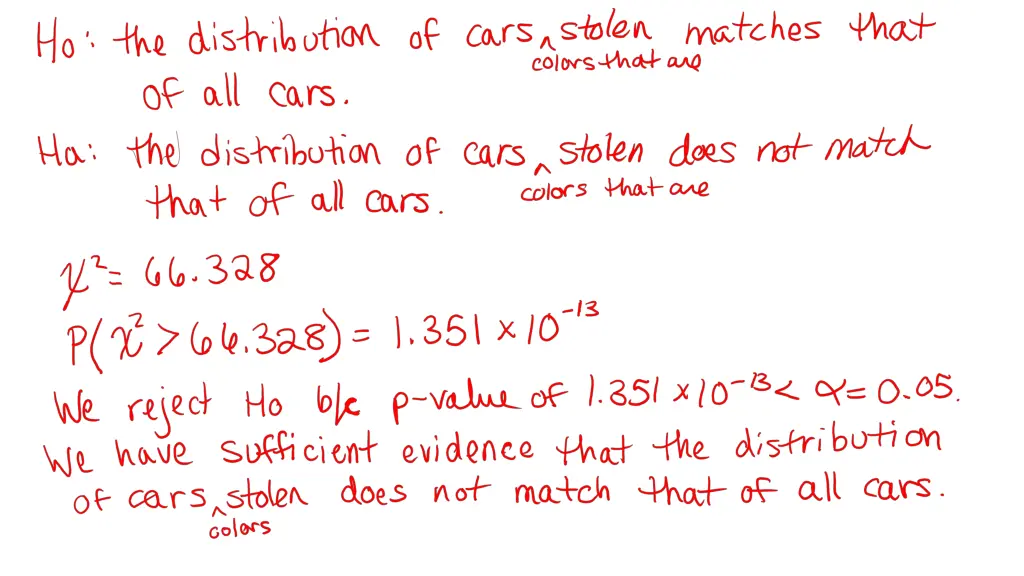 Ho: the distribution of cars ^ stolen matches that
colors that are
of all cars.
Ha: the distribution of cars ^ stolen does not match
colors that are
that of all cars.
χ²= 66.328
P(χ² > 66.328) = 1.351 × 10⁻¹³
We reject Ho b/c p-value of 1.351 × 10⁻¹³ < α = 0.05.
We have sufficient evidence that the distribution
of cars ^ stolen does not match that of all cars.
colors